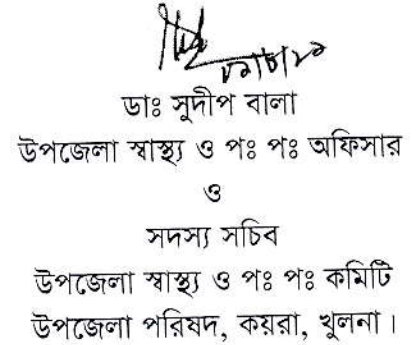 ডাঃ সুদীপ বালা
উপজেলা স্বাস্থ্য ও পঃ পঃ অফিসার
ও
সদস্য সচিব
উপজেলা স্বাস্থ্য ও পঃ পঃ কমিটি
উপজেলা পরিষদ, কয়রা, খুলনা।